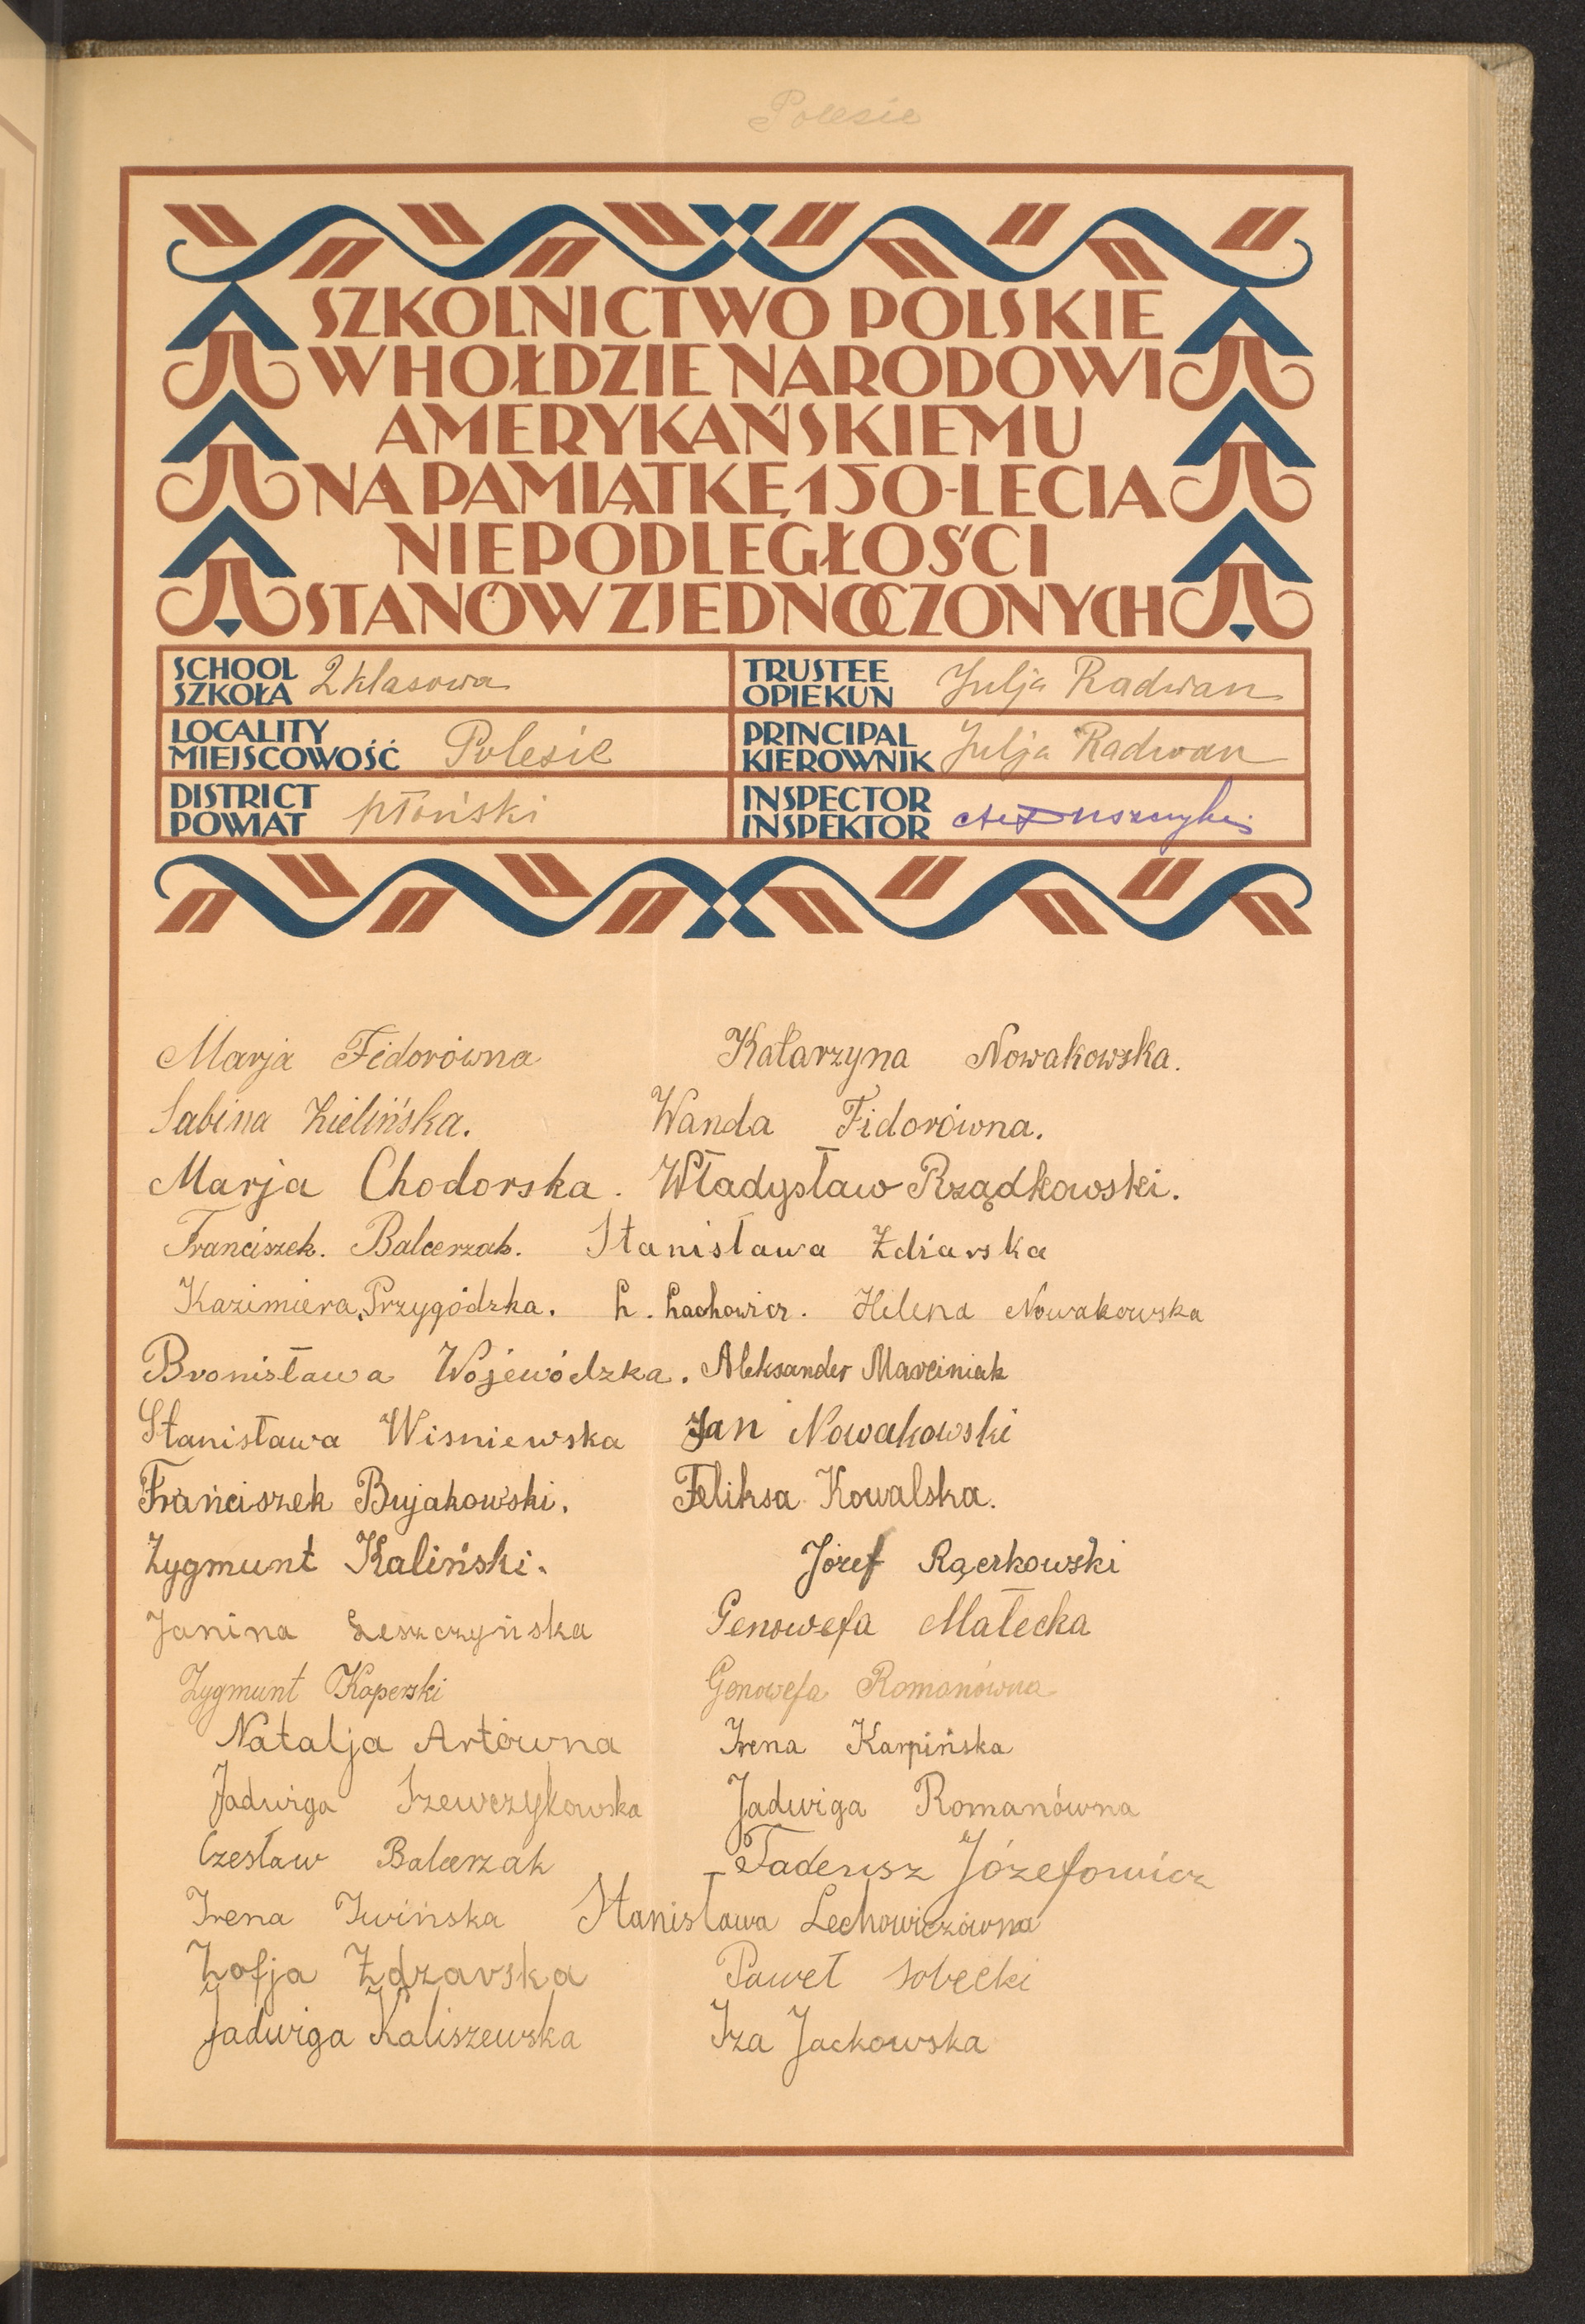 Polesie
SZKOLNICTWO POLSKIE
W HOŁDZIE NARODOWI
AMERYKAŃSKIEMU
NA PAMIĄTKĘ 150-LECIA
NIEPODLEGŁOŚCI
STANÓW ZJEDNOCZONYCH
SCHOOL
SZKOŁA 2 klasowa
TRUSTEE
OPIEKUN Julja Radwan
LOCALITY
MIEJSCOWOŚĆ Polesie
PRINCIPAL
KIEROWNIK Julja Radwan
DISTRICT
POWIAT płoński
INSPECTOR
INSPEKTOR
Marja Fidorówna Katarzyna Nowakowska.
Sabina Zielińska. Wanda Fidorówna.
Marja Chodorska. Władysław Rządkowski.
Franciszek. Balcerzak. Stanisława Zdiarska
Kazimiera Przygódzka. L. Lachowicz. Helena Nowakowska
Bronisława Wojewódzka. Aleksander Marciniak
Stanisława Wisniewska Jan Nowakowski
Franciszek Bujakowski. Feliksa Kowalska.
Zygmunt Kaliński. Józef Rączkowski
Janina Leszczyńska Genowefa Małecka
Zygmunt Koperski Genowefa Romanówna
Natalja Artówna Irena Karpińska
Jadwiga Szewczykowska Jadwiga Romanówna
Czesław Balcerzak Tadeusz Józefowicz
Irena Iwińska Stanisława Lechowiczówna
Zofja Zdzarska Paweł Sobecki
Jadwiga Kaliszewska Iza Jackowska